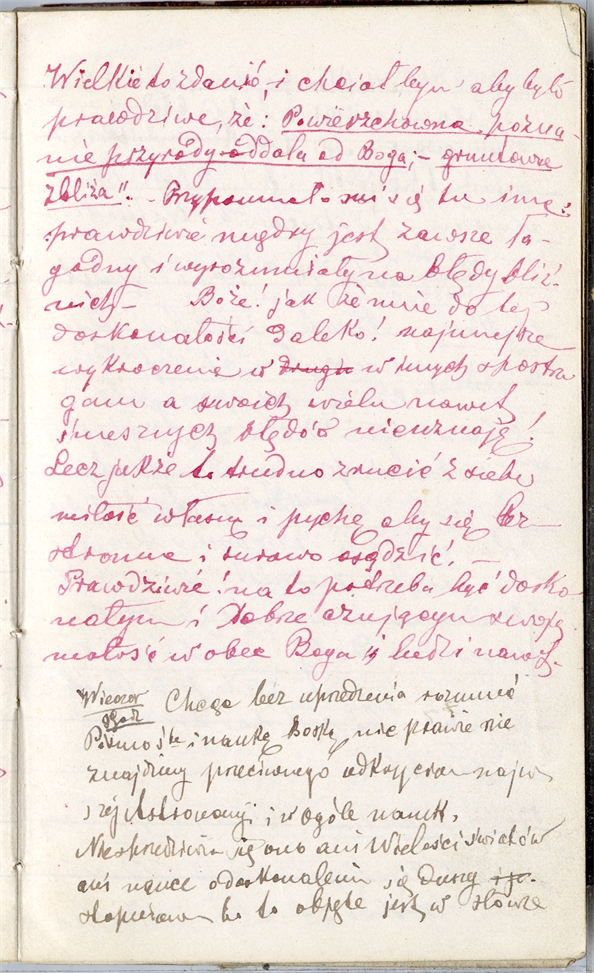 Wielkie to zdanie, i chciał bym aby było
prawdziwe, że: Powierzchowna pozna-
nie przyrody oddala od Boga; – gruntowne
zbliża". – Przypomniało mi się tu inne:
prawdziwie mądry jest zawsze ła-
godny i wyrozumiały na błędy bliź-
nich – Boże! jak że mnie do tej
doskonałości daleko! najmniejsze
wykroczenie w drugi w innych spostrze
gam a swoich wielu nawet
śmiesznych błędów nieuznaję!
Lecz jakże to trudno zrucić z siebie
miłość własną i pychę aby się bez-
stronnie i surowo osądzić! –
Prawdziwie! na to potrzeba być dosko
nałym i dobrze czującym swoją
małość w obec Boga i ludzi nawet.
Wieczor Chcąc bez uprzedzenia rozumieć
Pismo Śte i naukę Boską, nic prawie nie
znajdziemy przeciwnego odkryciom najno
szej Astronomji i w ogóle nauk.
Niesprzeciwia się ono ani Wielości światów
ani nauce o doskonaleniu się duszy
stopniowem bo to objęte jest w słowie